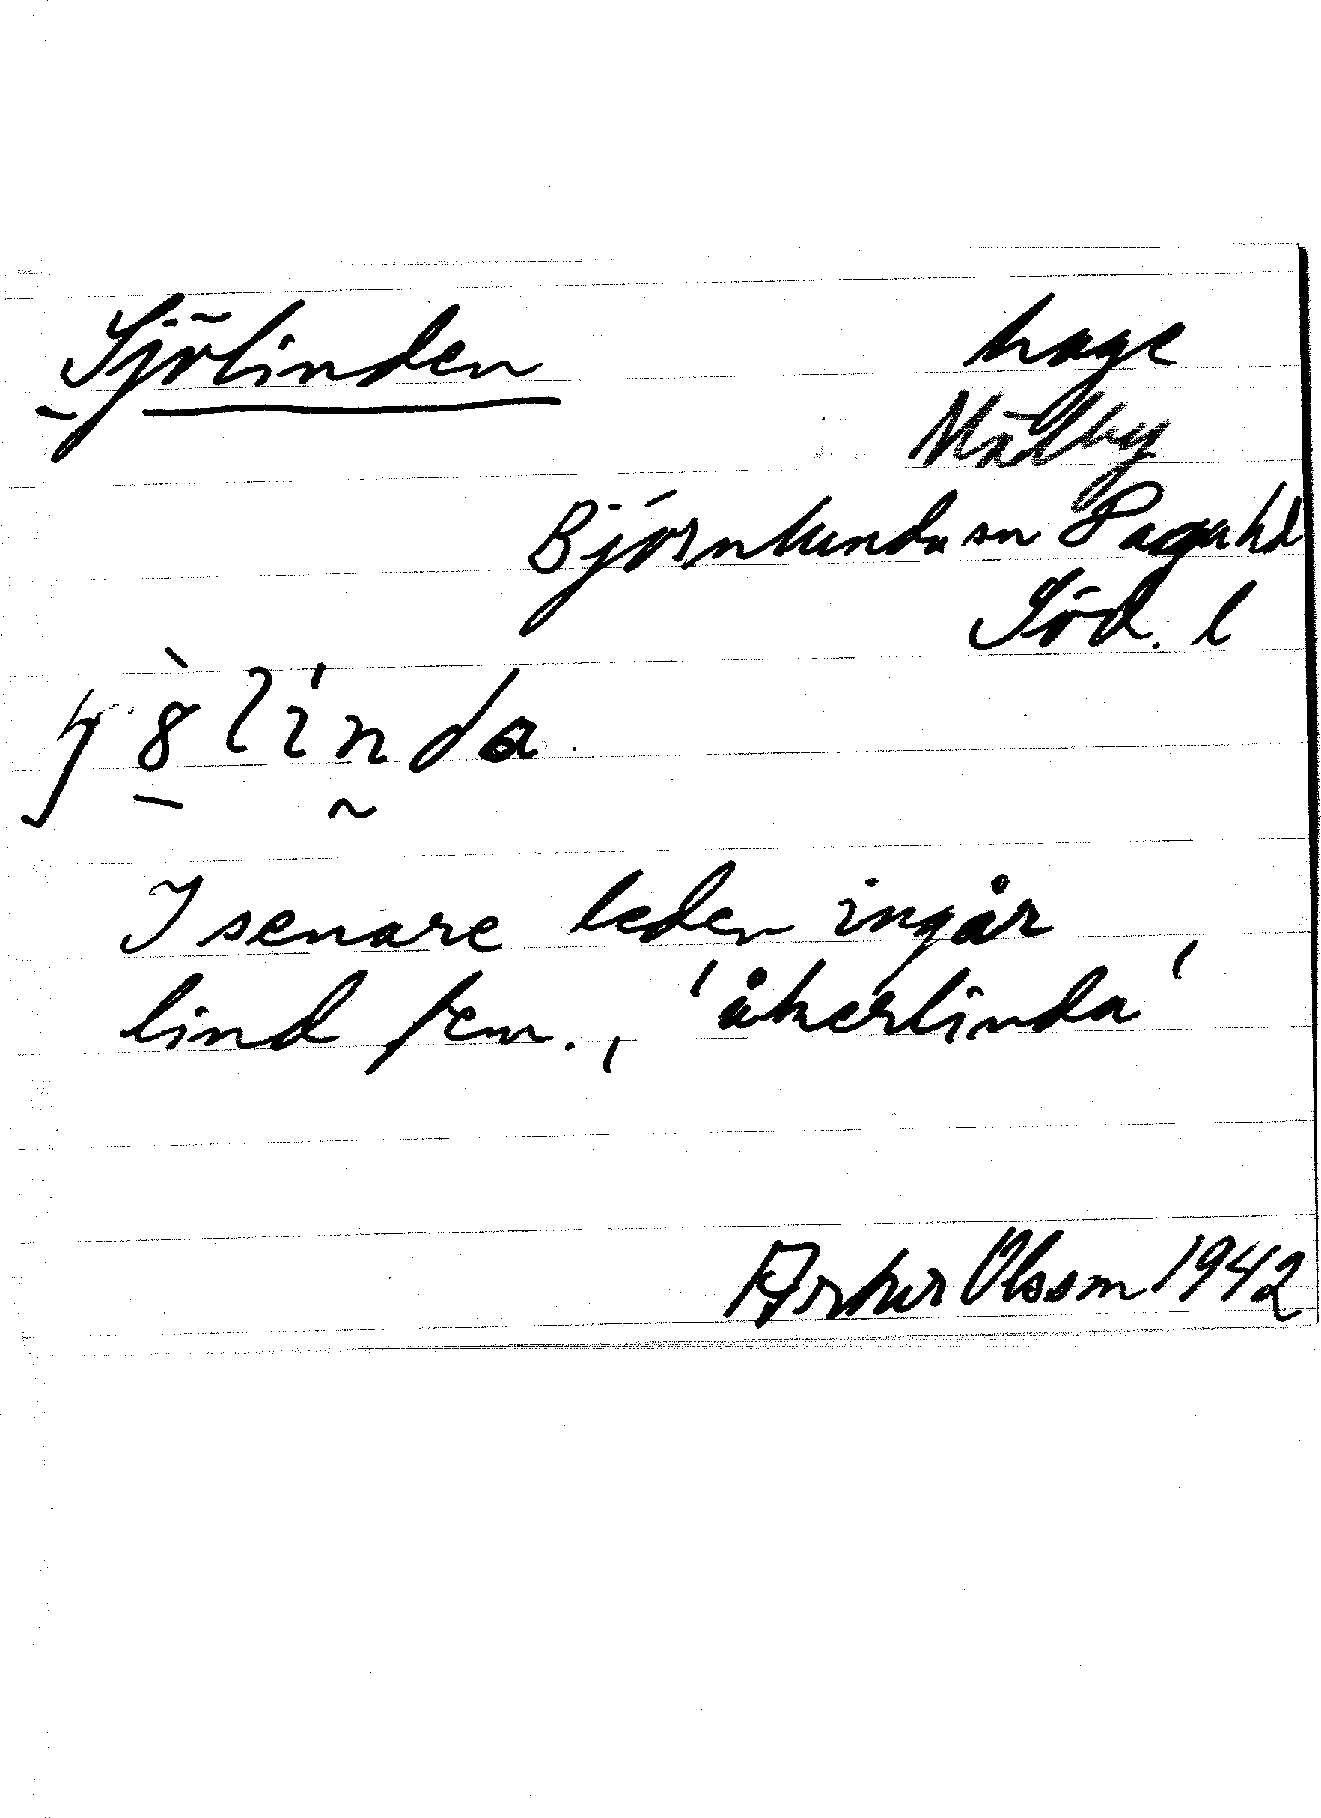 Sjölinden
hage
Mälby
Björnlunda sn Daga hd
Söd. l
I senare leden ingår
lind fem., 'åkerlinda'
Artur Olsson 1942